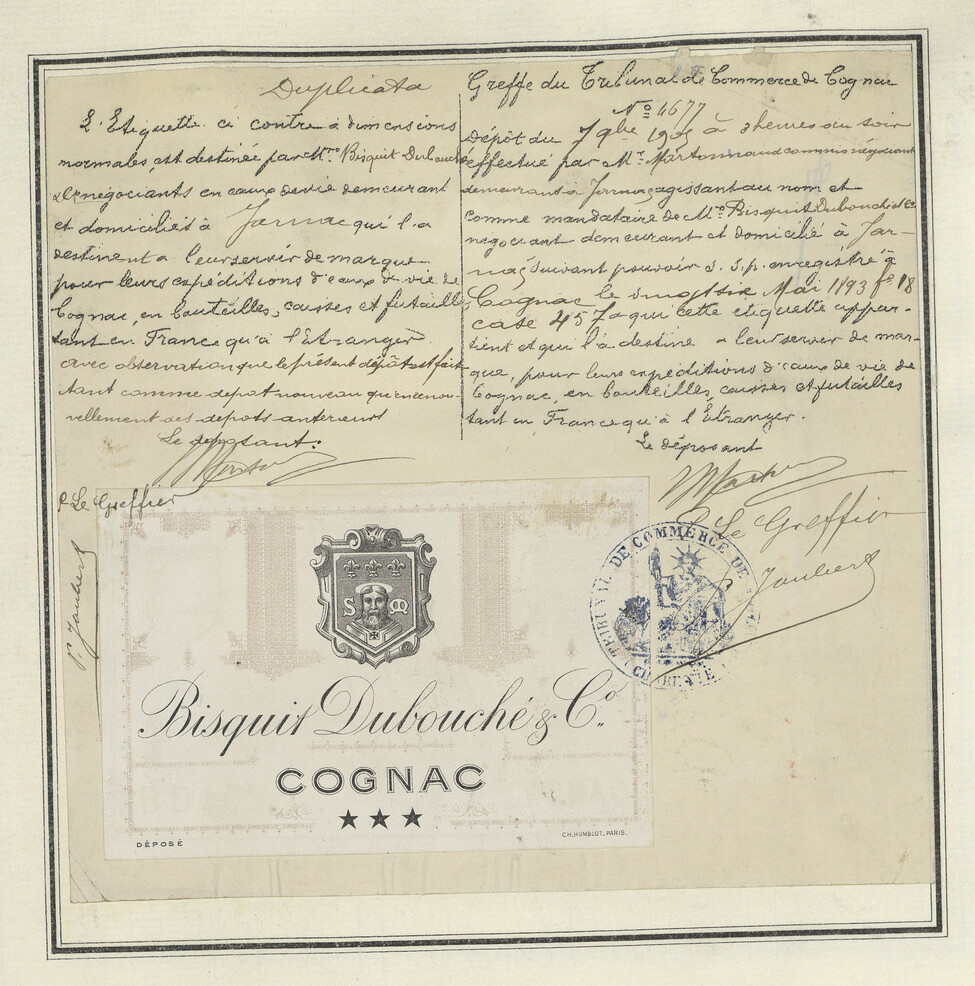 Duplicata
L'Etiquette ci contre à dimensions
normales, est destinée par Mrs Bisquit Dubouché
& Co negociants en eaux de vie demeurant
et domiciliés à Jarnac qui l'a
destinent a leur servir de marque
pour leurs expéditions d'eaux de vie de
Cognac, en bouteilles, caisses et futailles
tant en France qu'à l'Etranger.
avec observation que le présent dépôt est fait
tant comme depot nouveau qu'en renou-
vellement des depots anterieurs
Le déposant:
P Le Greffier
P. Jaubert
Greffe du Tribunal de Commerce de Cognac
No 4677
Dépôt du 7 9bre 1905 à 3 heures du soir
effectué par Mr commis négociant
demeurant à Jarnac agissant au nom et
comme mandataire de Mrs Bisquit Dubouché & Co
négociant demeurant et domicilié à Jar-
nac, suivant pouvoir s.s.p. enregistré à
Cognac le Mai 1893 fo 18
case 457 a qui cette etiquette appar-
tient et qui l'a destine a leur servir de mar-
que, pour leurs expéditions d'eaux de vie de
Cognac, en bouteilles, caisses et futailles
tant en France qu'à l'Etranger.
Le déposant
P Le Greffier
P. Jaubert
TRIBUNAL DE COMMERCE DE
CHARENTE
S M
Bisquit Dubouché & Co.
COGNAC
★★★
DÉPOSÉ
CH. HUMBLOT, PARIS.